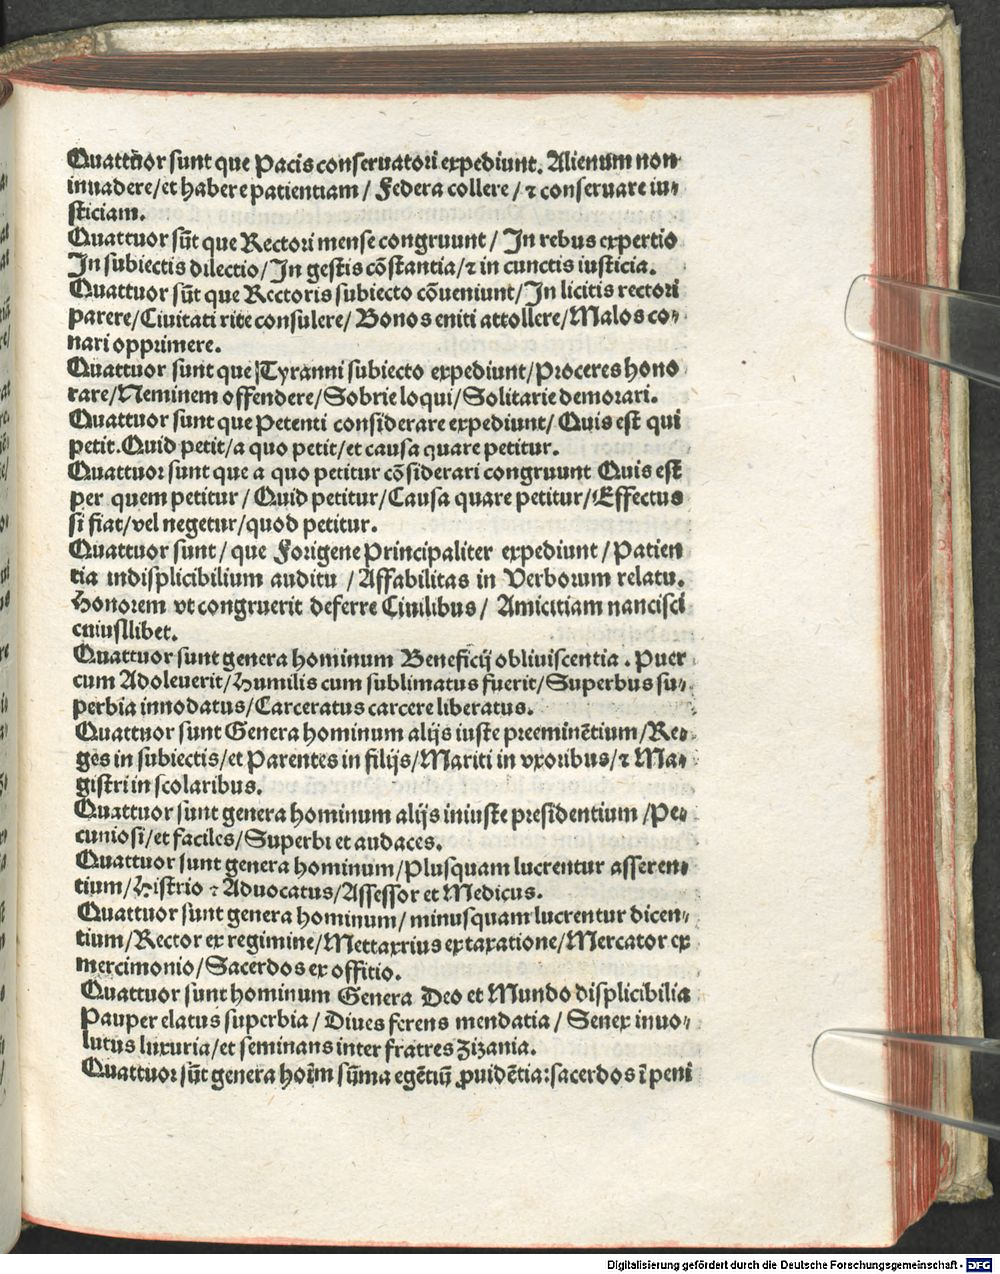 Quattuor sunt que Pacis conseruatori expediunt. Alienum non
inuadere/et habere patientiam/ Federa collere/ ⁊ conseruare iu-
sticiam.
Quattuor sūt que Rectori mense congruunt/ In rebus expertio
In subiectis dilectio/In gestis cōstantia/⁊ in cunctis iusticia.
Quattuor sūt que Rectoris subiecto cōueniunt/In licitis rectori
parere/Ciuitati rite consulere/ Bonos eniti attollere/Malos co-
nari opprimere.
Quattuor sunt que Tyranni subiecto expediunt/Proceres hono
rare/Neminem offendere/Sobrie loqui/Solitarie demorari.
Quattuor sunt que Petenti considerare expediunt/ Quis est qui
petit.Quid petit/a quo petit/et causa quare petitur.
Quattuor sunt que a quo petitur cōsiderari congruunt Quis est
per quem petitur/ Quid petitur/Causa quare petitur/Effectus
si fiat/vel negetur/quod petitur.
Quattuor sunt/ que Forigene Principaliter expediunt/Patien
tia indisplicibilium auditu /Affabilitas in Verborum relatu.
Honorem vt congruerit deferre Ciuilibus/ Amicitiam nancisci
cuiusllibet.
Quattuor sunt genera hominum Beneficij obliuiscentia . Puer
cum Adoleuerit/Humilis cum sublimatus fuerit/Superbus su-
perbia innodatus/Carceratus carcere liberatus.
Quattuor sunt Genera hominum alijs iuste preeminētium/Re-
ges in subiectis/et Parentes in filijs/Mariti in vxoribus/⁊ Ma-
gistri in scolaribus.
Quattuor sunt genera hominum alijs iniuste presidentium /Pe-
cuniosi/et faciles/Superbi et audaces.
Quattuor sunt genera hominum/Plusquam lucrentur asseren-
tium/Histrio ⁊ Aduocatus/Assessor et Medicus.
Quattuor sunt genera hominum/ minusquam lucrentur dicen-
tium/Rector ex regimine/Mettaxrius ex taxatione/Mercator ex
mercimonio/Sacerdos ex offitio.
Quattuor sunt hominum Genera Deo et Mundo displicibilia
Pauper elatus superbia/ Diues ferens mendatia/ Senex inuo-
lutus luxuria/et seminans inter fratres Zizania.
Quattuor sūt genera hoīm sūma egētiū ꝓuidētia:sacerdos ī peni
Digitalisierung gefördert durch die Deutsche Forschungsgemeinschaft - DFG